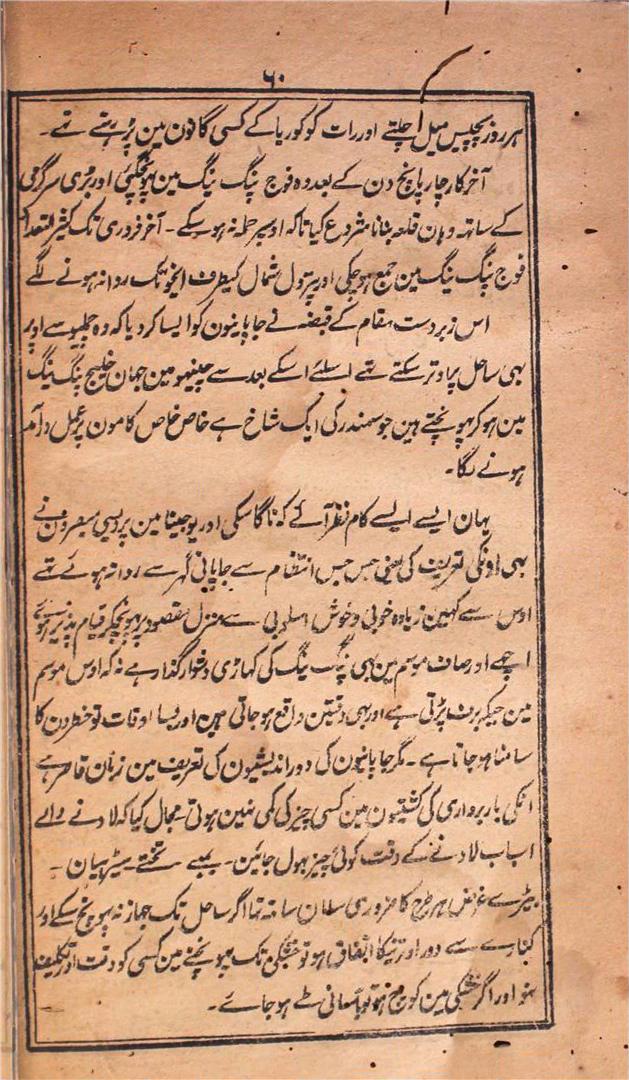 ۶۰
ہر روز پچیس میل چلتے اور رات کو کوریا کے کسی گانون مین پڑ رہتے تھے۔
آخرکار چار پانچ دن کے بعد وہ فوج پنگ ینگ مین پہونچگئی اور بڑی سرگرمی
کے ساتھ وہان قلعہ بنانا شروع کیا تاکہ اوسپر حملہ نہ ہوسکے۔ آخر فروری تک کثیر التعداد
فوج پنگ ینگ مین جمع ہوچکی اور پٹرول شمال کیطرف انجو تک روانہ ہونے لگے
اس زبردست مقام کے قبضہ نے جاپانیون کو ایسا کردیا کہ وہ چملپو سے اوپر
بھی ساحل پر اوتر سکتے تھے اسلئے اسکے بعد سے چینمپو مین جہان خلیج پنگ ینگ
مین ہوکر پہونچتے ہین جو سمندر کی ایک شاخ ہے خاص خاص کامون پر عمل درآمد
ہونے لگا۔
یہان ایسے ایسے کام نظر آئے کہ ناگاسکی اور یوجینا مین پردیسی مبصرون نے
بھی اونکی تعریف کی یعنی جس جس انتظام سے جاپانی گھر سے روانہ ہوئے تھے
اوس سے کہین زیادہ خوبی و خوش اسلوبی سے منزل مقصود پر پہونچکر قیام پذیر ہوئے
اچھے اور صاف موسم مین بھی پنگ ینگ کی کھاڑی دشوار گذار ہے نہ کہ اوس موسم
مین جبکہ برف پڑتی ہے اور بھی دقتین واقع ہوجاتی ہین اور بسا اوقات تو خطرون کا
سامنا ہوجاتا ہے۔ مگر جاپانیون کی دور اندیشیون کی تعریف مین زبان قاصر ہے
انکی باربرداری کی کشتیون مین کسی چیز کی کمی نہین ہوتی۔ مجال کیا کہ لادنے والے
اسباب لادنے کے وقت کوئی چیز بھول جائین۔ بمبے۔ تختے۔ سیڑہیان۔
بیڑے غرض ہر طرح کا ضروری سامان ساتھ تھا اگر ساحل تک جہاز نہ پہونچ سکے اور
کنارے سے دور اوترنیکا اتفاق ہو تو خشکی تک پہونچنے مین کسی کو دقت اور تکلیف
نہو اور اگر خشکی مین کوچ ہو تو بآسانی طے ہوجائے۔